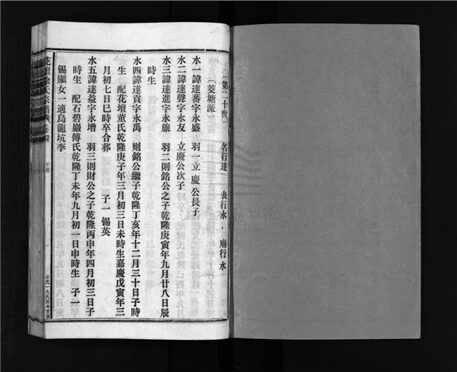 第二十世 名行達 表行水 廟行水
葵塘派
水一諱達蕃字永盛 羽一立慶公長子
水二諱達聲字永友 立慶公次子
水三諱達進字永旅 羽二則銘公之子乾隆庚寅年九月廿八日辰
時生
水四諱達貢字永禹 則銘公繼子乾隆丁亥年十二月三十日子時
生 配花墳董氏乾隆庚子年三月初三日未時生嘉慶戊寅年三
月初七日巳時卒合葬 子一 錫英
水五諱達益字永增 羽三則財公之子乾隆丙申年四月初三日子
時生 配石碧嚴傅氏乾隆丁未年九月初一日申時生 子一
錫顯女一適烏龍坑李